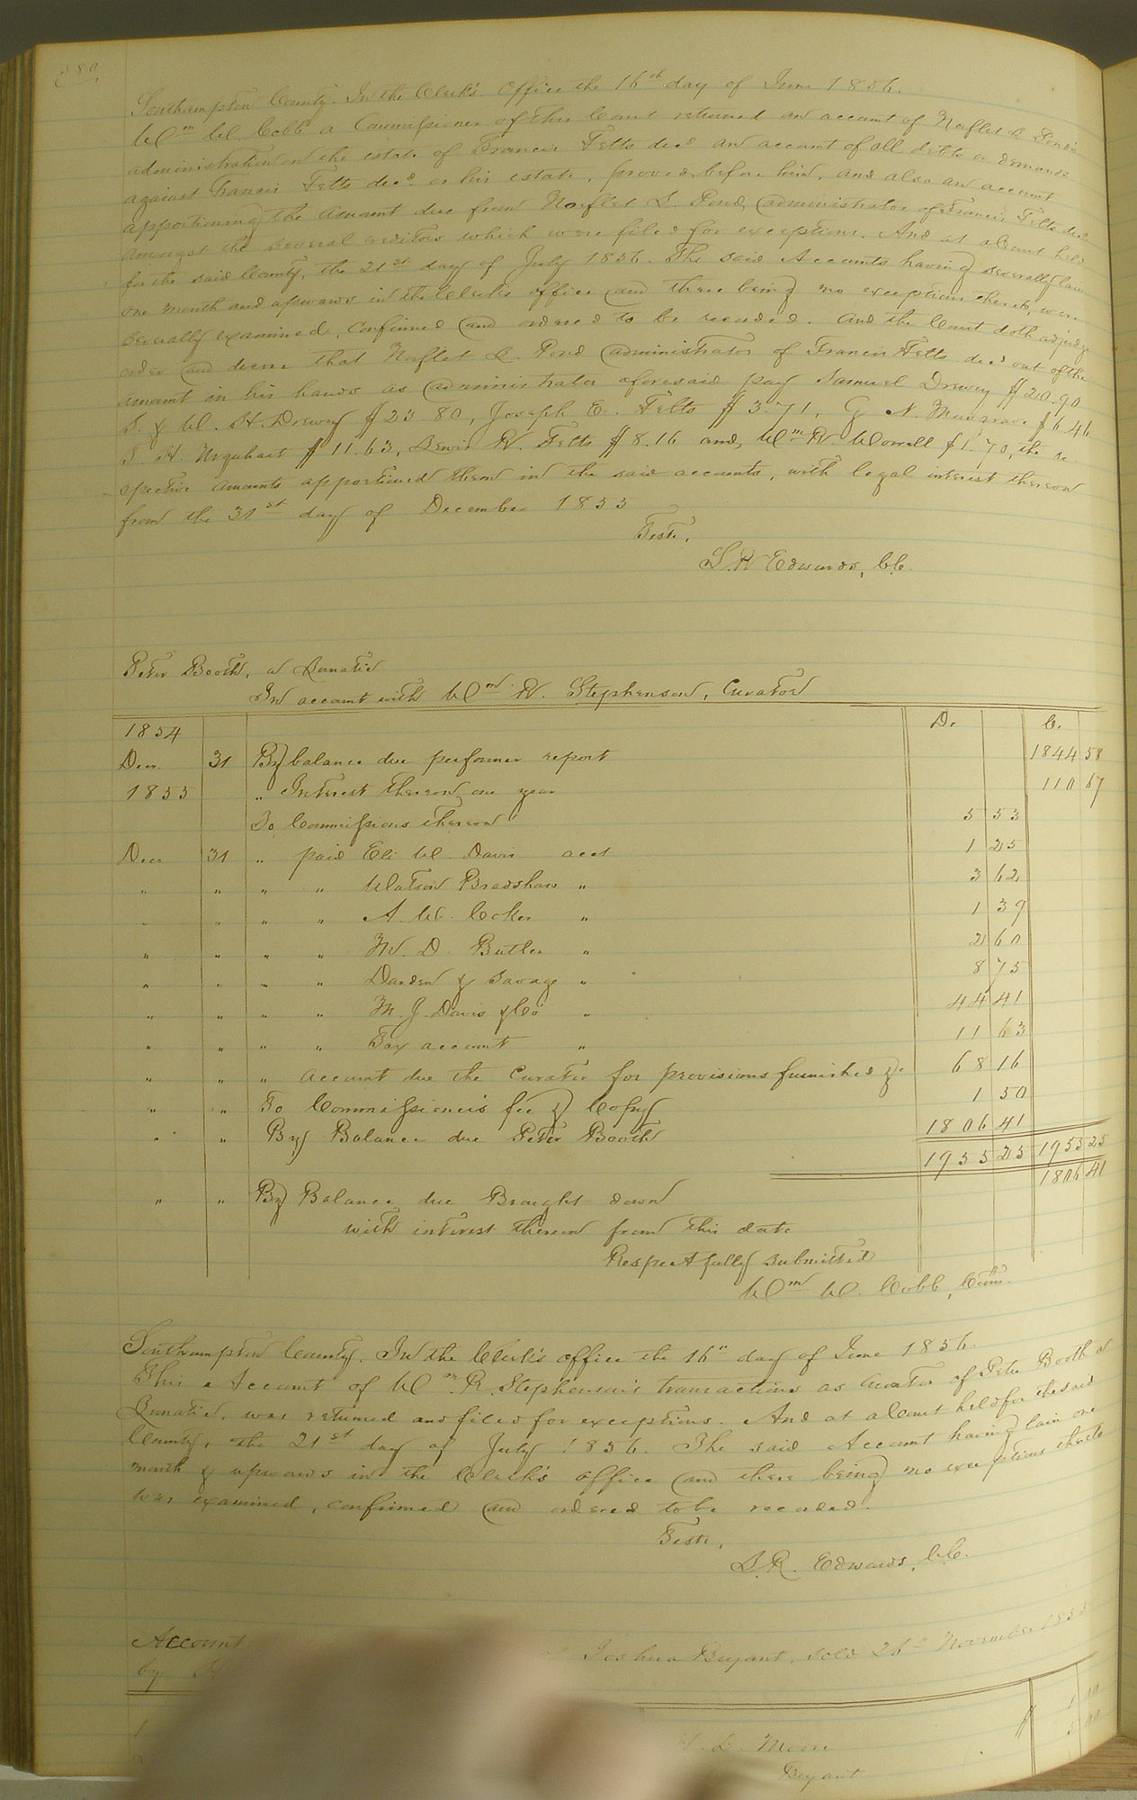 280,
Southampton County. In the Clerk's Office the 16th day of June 1856.
Wm W Cobb a Commissioner of this Court returned an account of Norflet S. Pond's
administration on the estate of Francis Felts decd an account of all debts or demands
against Francis Felts decd or his estate, proved before him, and also an account
apportioning the amount due from Norflet S. Pond, administrator of Francis Felts decd
amongst the several creditors which were filed for exceptions. And at a Court held
for the said County, the 21st day of July 1856. The said Accounts having severally lain
one month and upwards in the Clerk's office and there being no exceptions thereto, were
severally examined, confirmed and ordered to be recorded. And the Court doth adjudge
order and decree that Norflet S. Pond administrator of Francis Felts decd out of the
amount in his hands as administrator aforesaid pay Samuel Drewry $20.90
S. & W. H. Drewry $23 80, Joseph E. Felts $3.71, G N. Musgrave $6.46
S. H. Urquhart $11.63, Lewis R. Felts $8.16 and, Wm R Worrell $1.70, the re
spective amounts apportioned them in the said accounts, with legal interest thereon
from the 31st day of December 1855
Teste,
L. R Edwards, C.C.
Peter Booth, a Lunatic
In account with Wm R. Stephenson, Curator
1854 Dr. Cr.
Decr. 31 By balance due per former report 1844 58
1855 " Interest thereon one year 110 67
To Commissions thereon 5 53
Decr 31 " paid Eli W. Davis acct 1 25
" " " " Watson Bradshaw " 3 62
" " " " A. W. Coker " 1 39
" " " " M. D. Butler " 2 60
" " " " Darden & Savage " 8 75
" " " " M. J. Davis & Co " 44 41
" " " " Tax account " 11 63
" " " account due the Curator for provisions furnished &c 68 16
" " To Commissioner's fee & Copy 1 50
" " By Balance due Peter Booth 1806 41
1955 25 1955 25
" " By Balance due Brought down 1806 41
with interest thereon from this date
Respectfully submitted
Wm W. Cobb, Com.
Southampton County. In the Clerk's office the 16" day of June 1856.
This Account of Wm R. Stephenson's transactions as Curator of Peter Booth a
Lunatic, was returned and filed for exceptions. And at a Court held for the said
County, the 21st day of July 1856. The said Account having lain one
month & upwards in the Clerk's office and there being no exceptions thereto
was examined, confirmed and ordered to be recorded.
Teste,
L. R. Edwards, C.C.
Account Joshua Bryant, sold 26th November 1855
by
Moore
Bryant